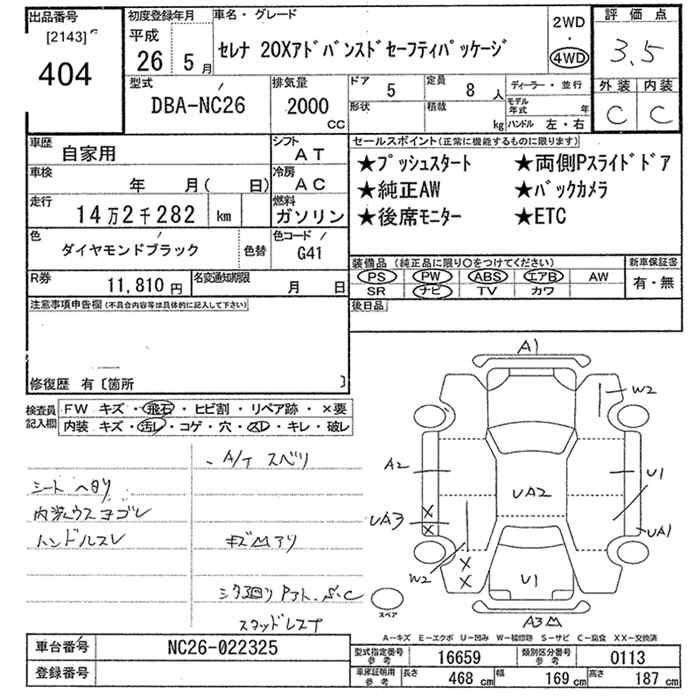 出品番号 [2143] 404
初度登録年月 平成 26年 5月
車名・グレード
セレナ 20Xアドバンスドセーフティパッケージ
2WD ・ 4WD
評価点 3.5
外装 内装
C C
型式 DBA-NC26
排気量 2000 CC
ドア 5
定員 8人
形状
積載 kg
ディーラー・並行
モデル年式 年
ハンドル 左・右
車歴 自家用
シフト AT
車検 年 月( 日)
冷房 AC
走行 14万2千282 km
燃料 ガソリン
色 ダイヤモンドブラック 色替
色コード / G41
R券 11,810円
名変通知期限 月 日
セールスポイント(正常に機能するものに限ります)
★プッシュスタート ★両側Pスライドドア
★純正AW ★バックカメラ
★後席モニター ★ETC
装備品(純正品に限り〇をつけてください)
新車保証書
PS PW ABS エアB AW
有・無
SR ナビ TV カワ
後日品
注意事項申告欄(不具合内容等は具体的に記入して下さい)
修復歴 有〔箇所 〕
検査員記入欄
FW キズ・飛石・ヒビ割・リペア跡・×要
内装 キズ・汚レ・コゲ・穴・スレ・キレ・破レ
A/T スベリ
シートヘタリ
内装ウスヨゴレ
ハンドルスレ
キズ凹アリ
スタッドレスタ
A1
W2
A2
U1
UA2
UA3
UA1
W2
U1
A3凹
スペア
A-キズ E-エクボ U-凹み W-補修跡 S-サビ C-腐食 XX-交換済
車台番号 NC26-022325
登録番号
型式指定番号 参考 16659
類別区分番号 参考 0113
車庫証明用 参考 長さ 468cm 幅 169cm 高さ 187cm